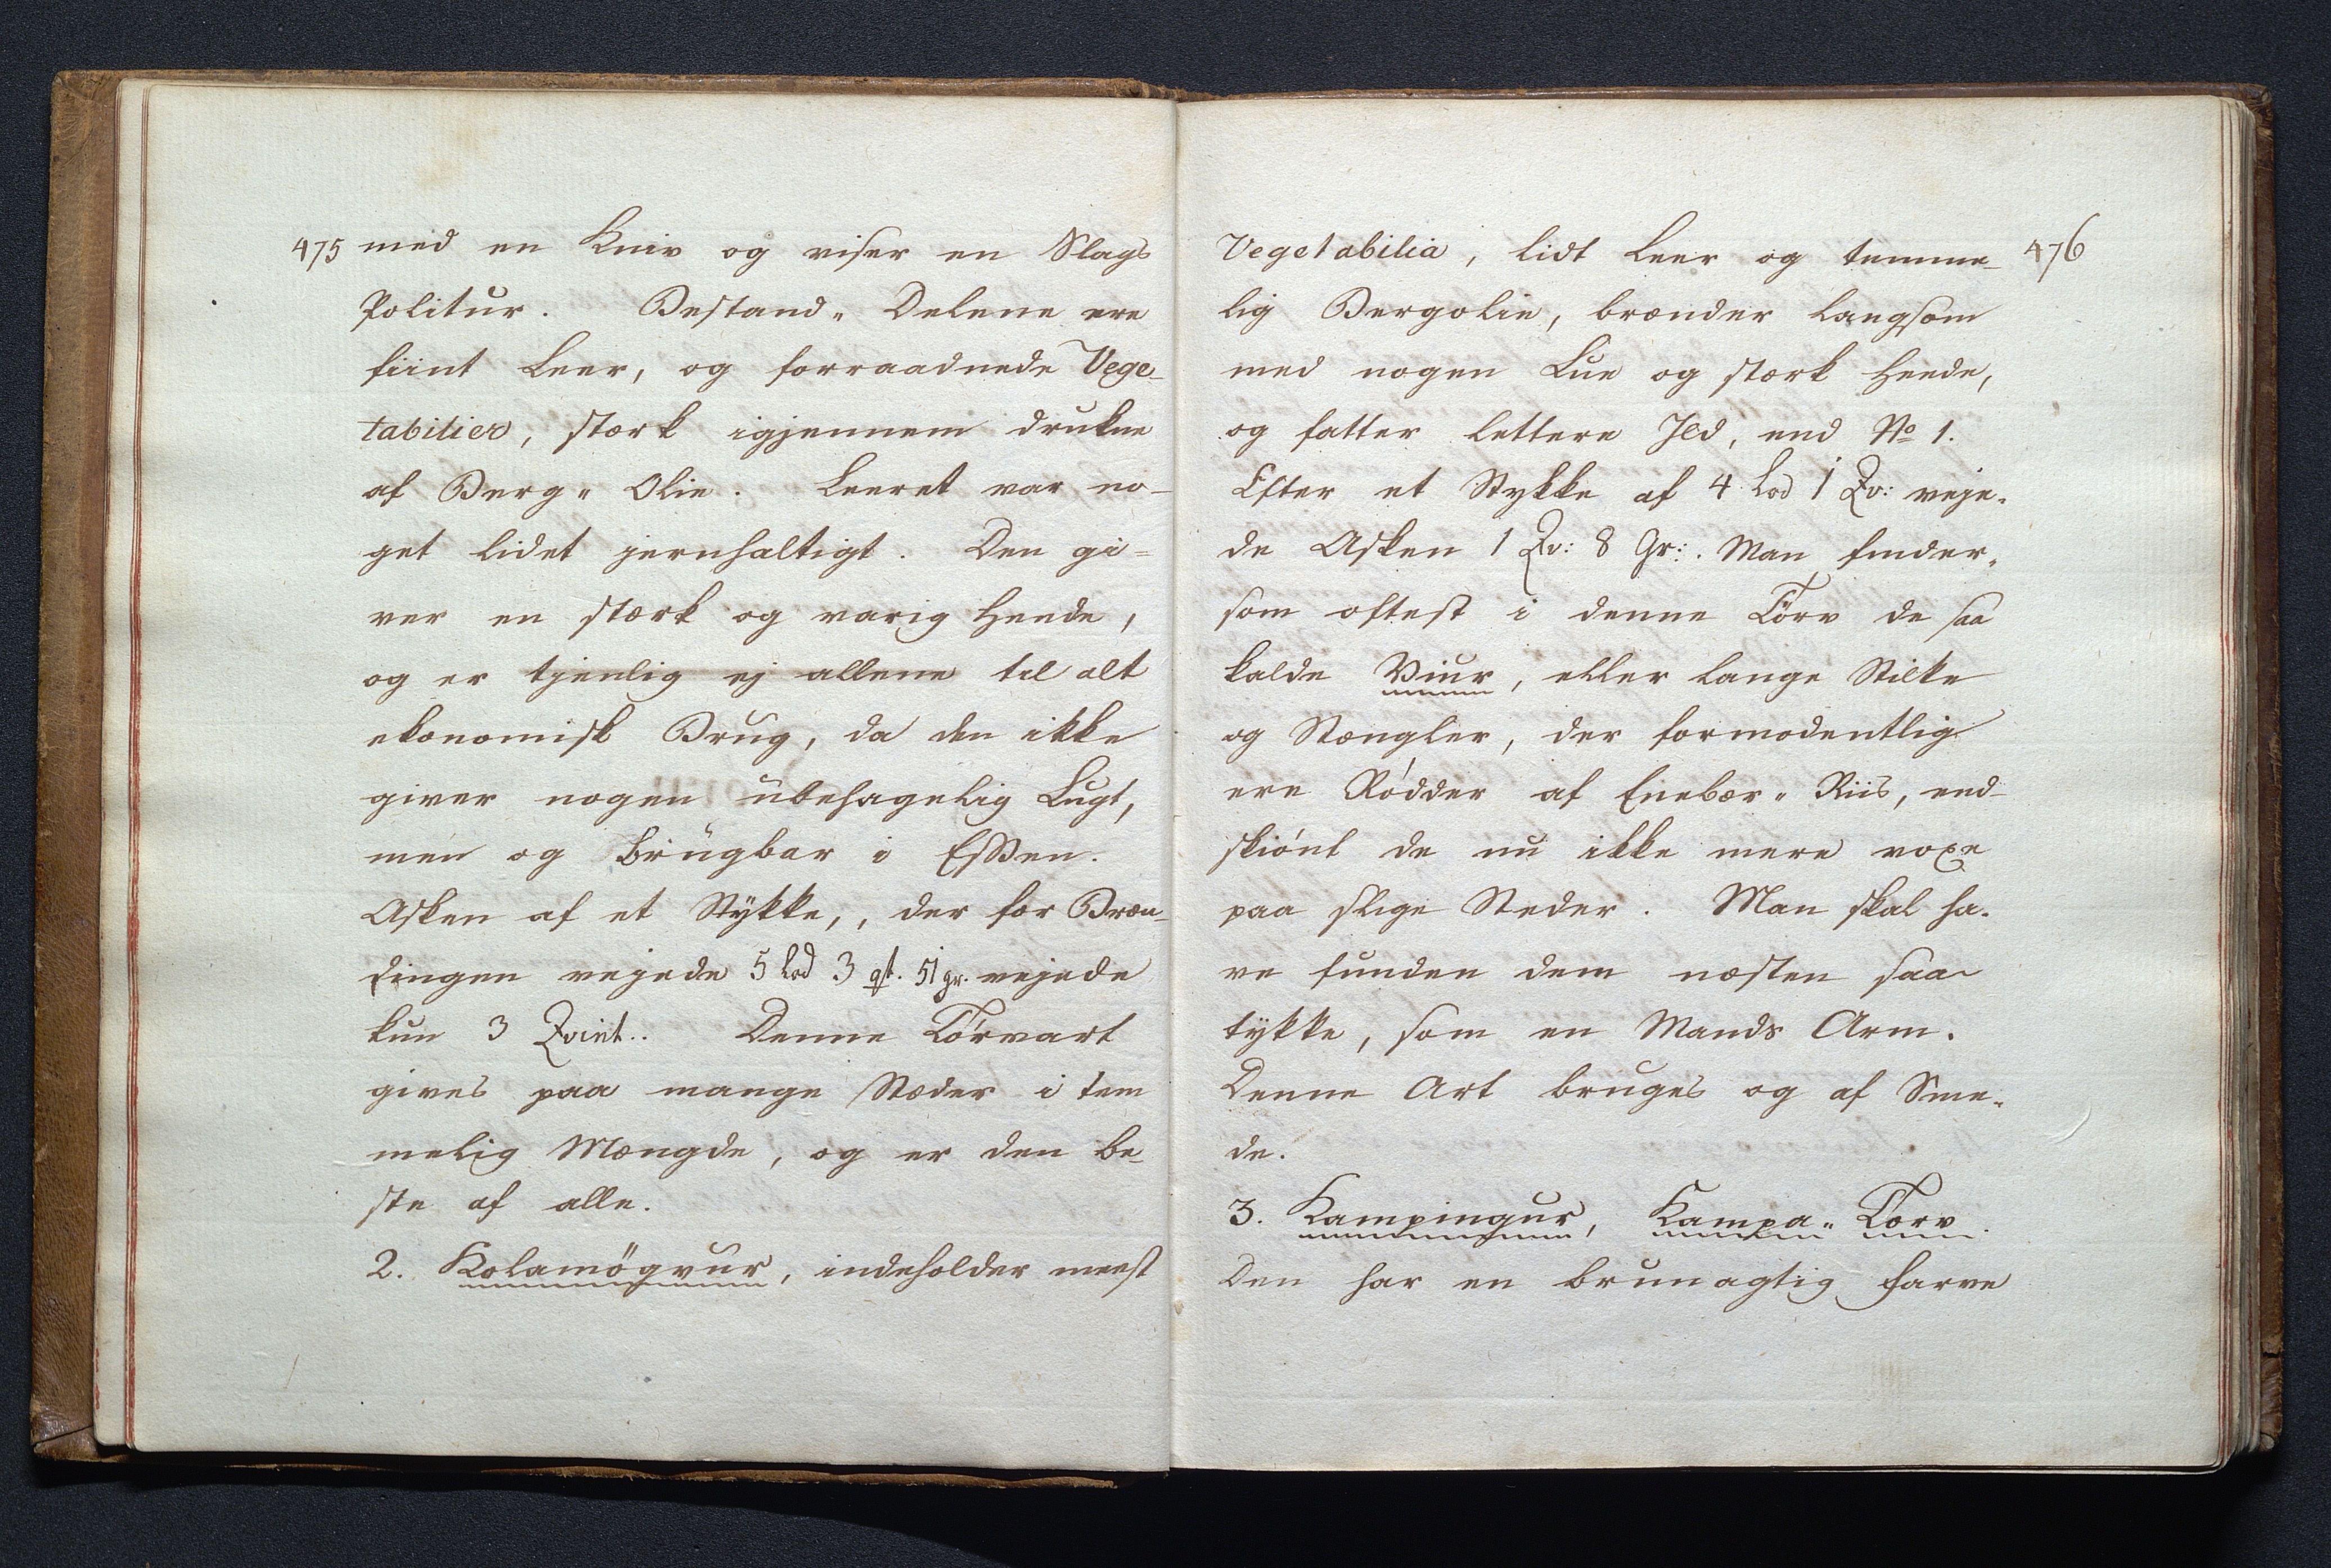 475 med en Kniv og viser en Slags
Politur. Bestand„ Delene ere
fiint Leer, og forraadnede Vege-
tabilier, stærk igjennem drukne
af Berg„ Olie. Leeret var no-
get lidet jernhaltigt. Den gi-
ver en stærk og varig Heede,
og er tjenlig ej allene til alt
ekonomisk Brug, da den ikke
giver nogen ubehagelig Lugt,
men og brugbar i Essen.
Asken af et Stykke, der før Bræn-
dingen vejede 5 Lod 3 qt. 51 gr. vejede
kun 3 Qvint.. Denne Törvart
gives paa mange Stæder i tem
melig Mængde, og er den be-
ste af alle.
2. Kolamögvur, indeholder meest
Vegetabilia, lidt Leer og temme- 476
lig Bergolie, brænder langsom
med nogen Lue og stærk Heede,
og fatter lettere Ild, end No 1.
Efter et Stykke af 4 Lod 1 Qv: veje-
de Asken 1 Qv: 8 Gr:. Man finder
som oftest i denne Törv de saa
kalde Viur, eller lange Stilke
og Stængler, der formodentlig
ere Ródder af Enebær„ Riis, end-
skiónt de nu ikke mere voxe
paa slige Steder. Man skal ha-
ve funden dem næsten saa
tykke, som en Mands Arm.
Denne Art bruges og af Sme-
de.
3. Kampingur, Kampa„ Torv.
Den har en brunagtig Farve